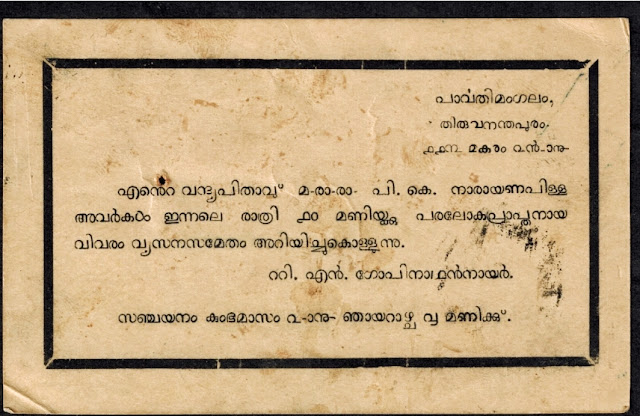 പാർവതിമംഗലം,
തിരുവനന്തപുരം.
മകരം ൨൯-ാനു-
എൻെറ വന്ദ്യപിതാവു് മ-രാ-രാ- പി. കെ. നാരായണപിള്ള
അവർകൾ ഇന്നലെ രാത്രി ൧൦ മണിയ്ക്കു പരലോകപ്രാപ്തനായ
വിവരം വ്യസനസമേതം അറിയിച്ചുകൊള്ളുന്നു.
ററി. എൻ. ഗോപിനാഥൻനായർ.
സഞ്ചയനം കുംഭമാസം ൨-ാനു- ഞായറാഴ്ച ൮ മണിക്കു്.